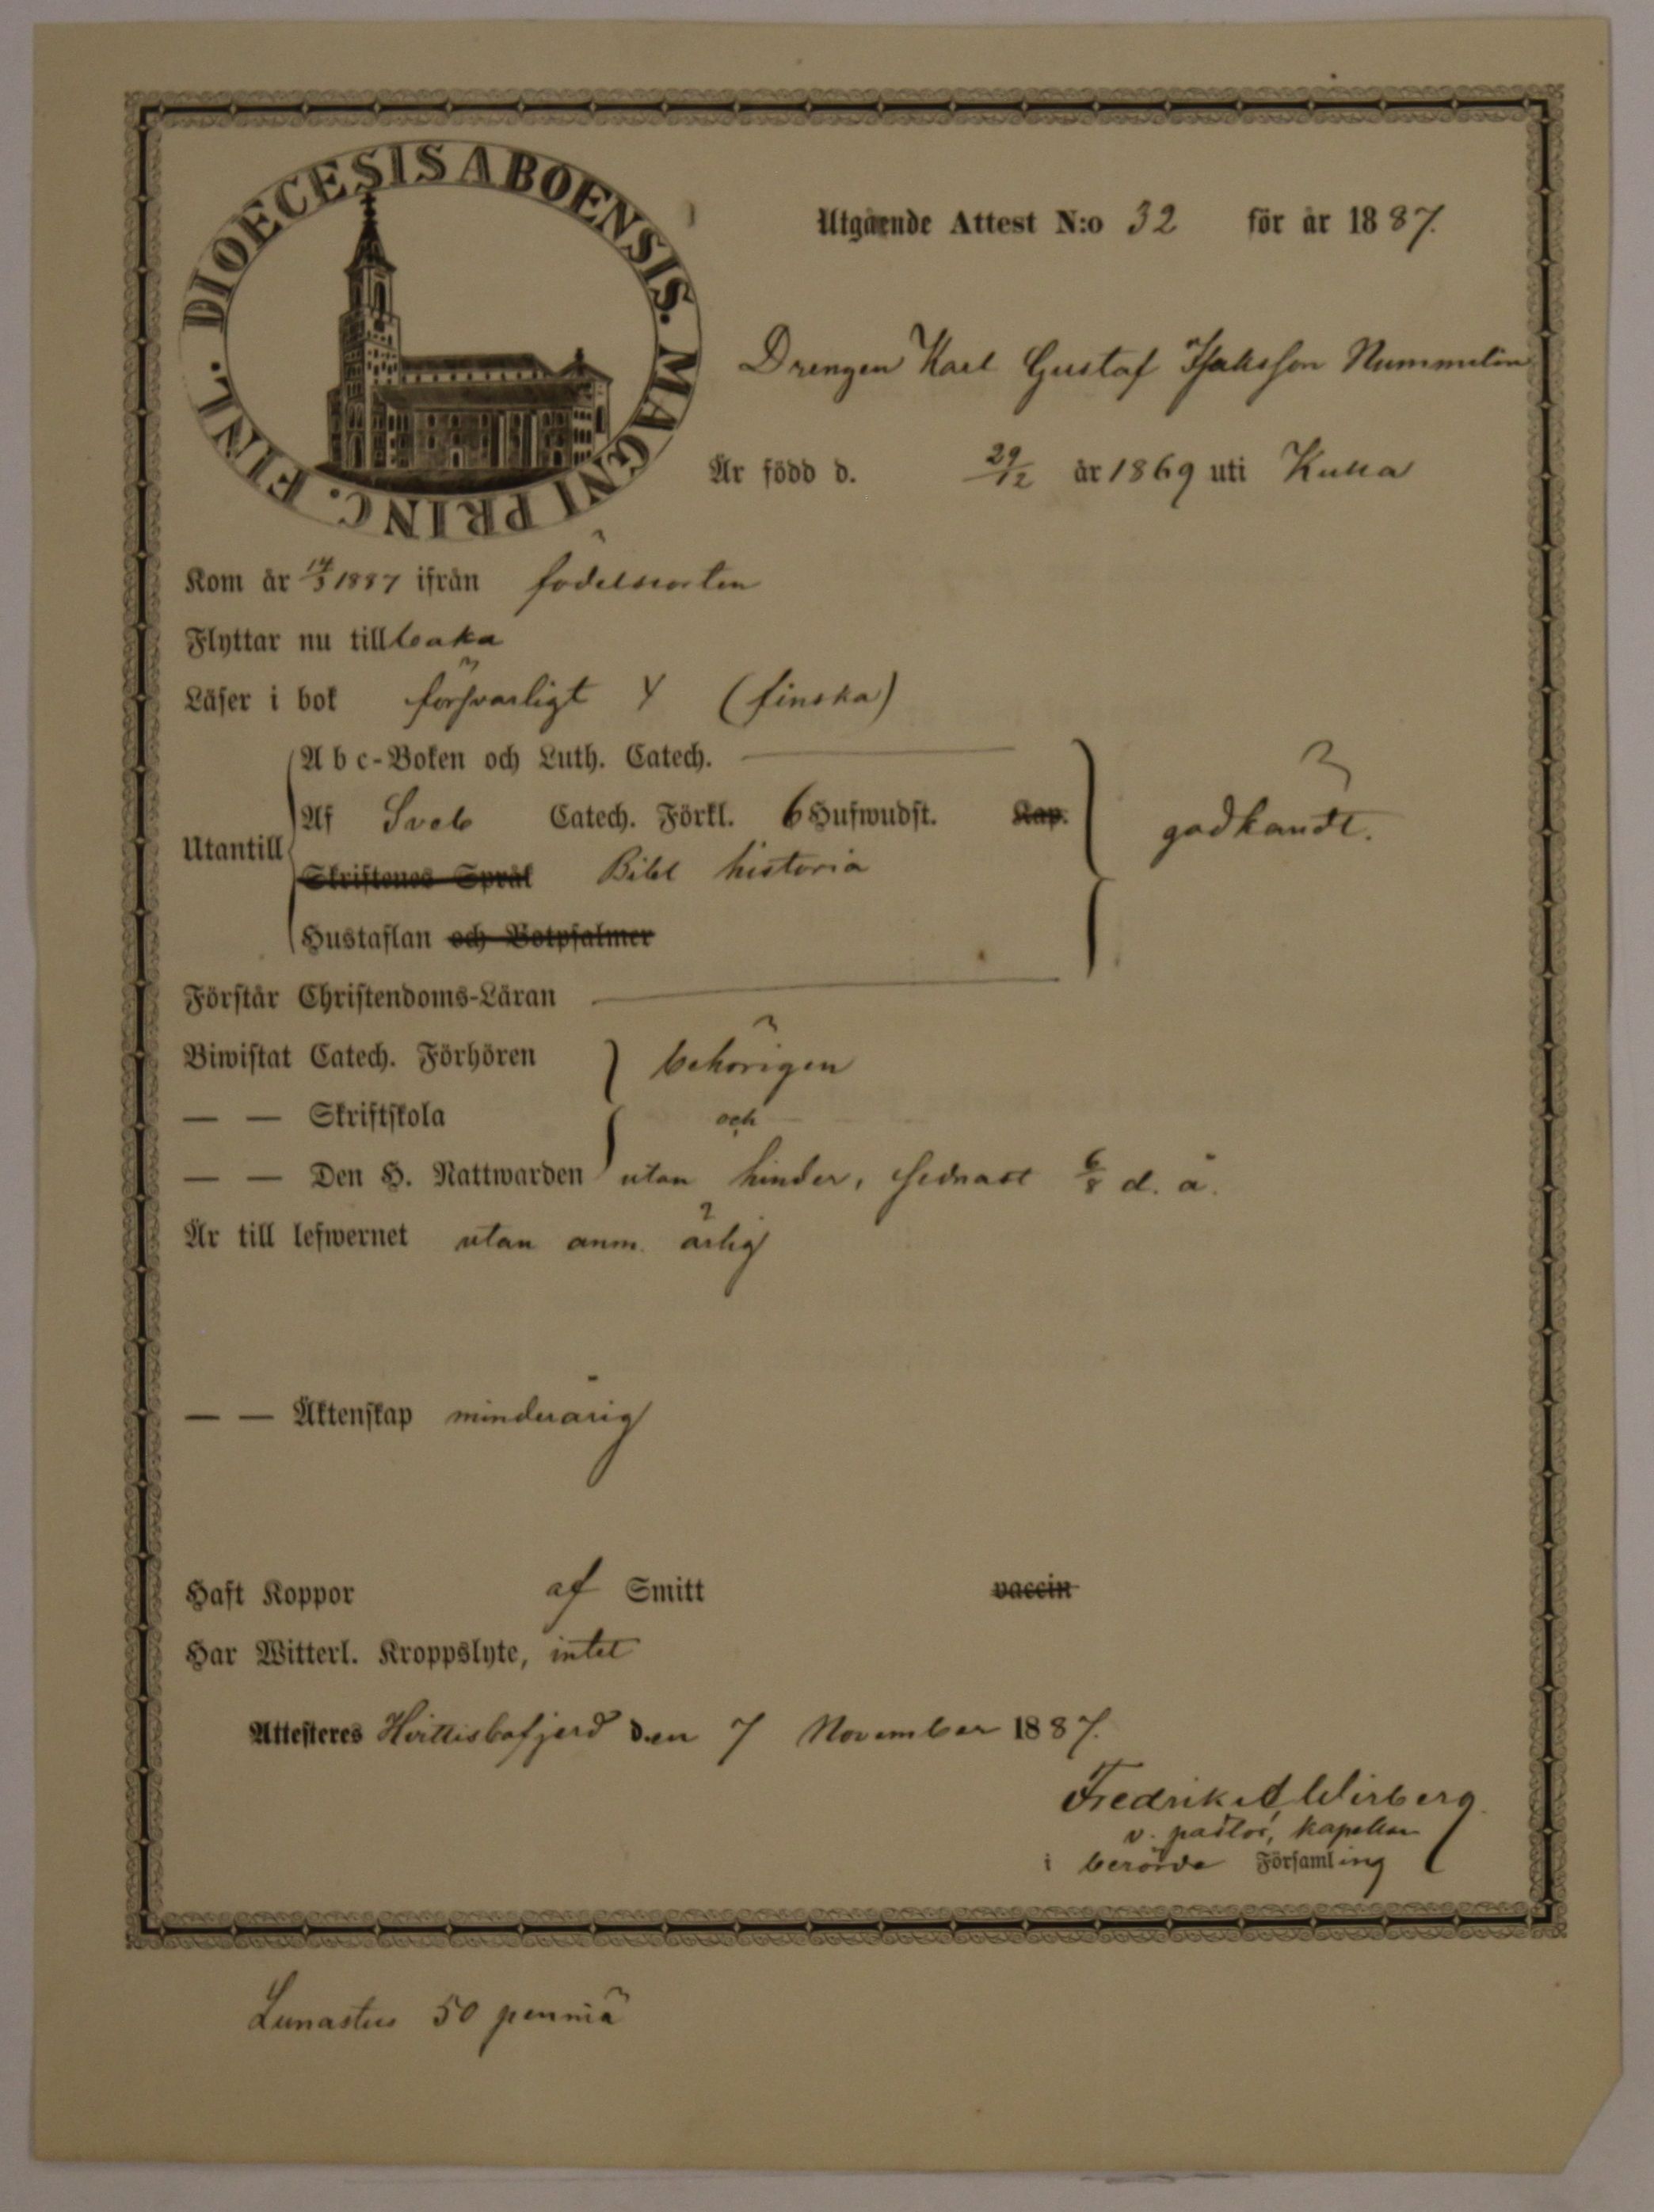 DIOECESIS ABOENSIS. MAGNI PRINC. FINL.
Utgående Attest N:o 32 för år 1887.
Drengen Karl Gustaf Isaksson Nummelin
Är född d. 29/12 år 1869 uti Kulla
Kom år 14/3 1887 ifrån födelseorten
Flyttar nu till baka
Läser i bok försvarligt Y (finska)
Abc-Boken och Luth. Catech.
Utantill
Af Sveb Catech. Förkl. 6 Hufwudst. Kap.
godkändt.
Skriftenes Språk Bibl historia
Hustaflan och Botpsalmer
Förstår Christendoms-Läran
Biwistat Catech. Förhören behörigen
— — Skriftskola och
— — Den H. Nattwarden utan hinder, sednast 6/8 d. å.
Är till lefwernet utan anm. ärlig
— — Äktenskap minderårig
Haft Koppor af Smitt vaccin
Har Witterl. Kroppslyte, intet
Attesteres Hvittisbofjerd den 7 November 1887.
Fredrik A Wirberg
v. pastor, kapellan
i berörde Församling
Lunastus 50 penniä